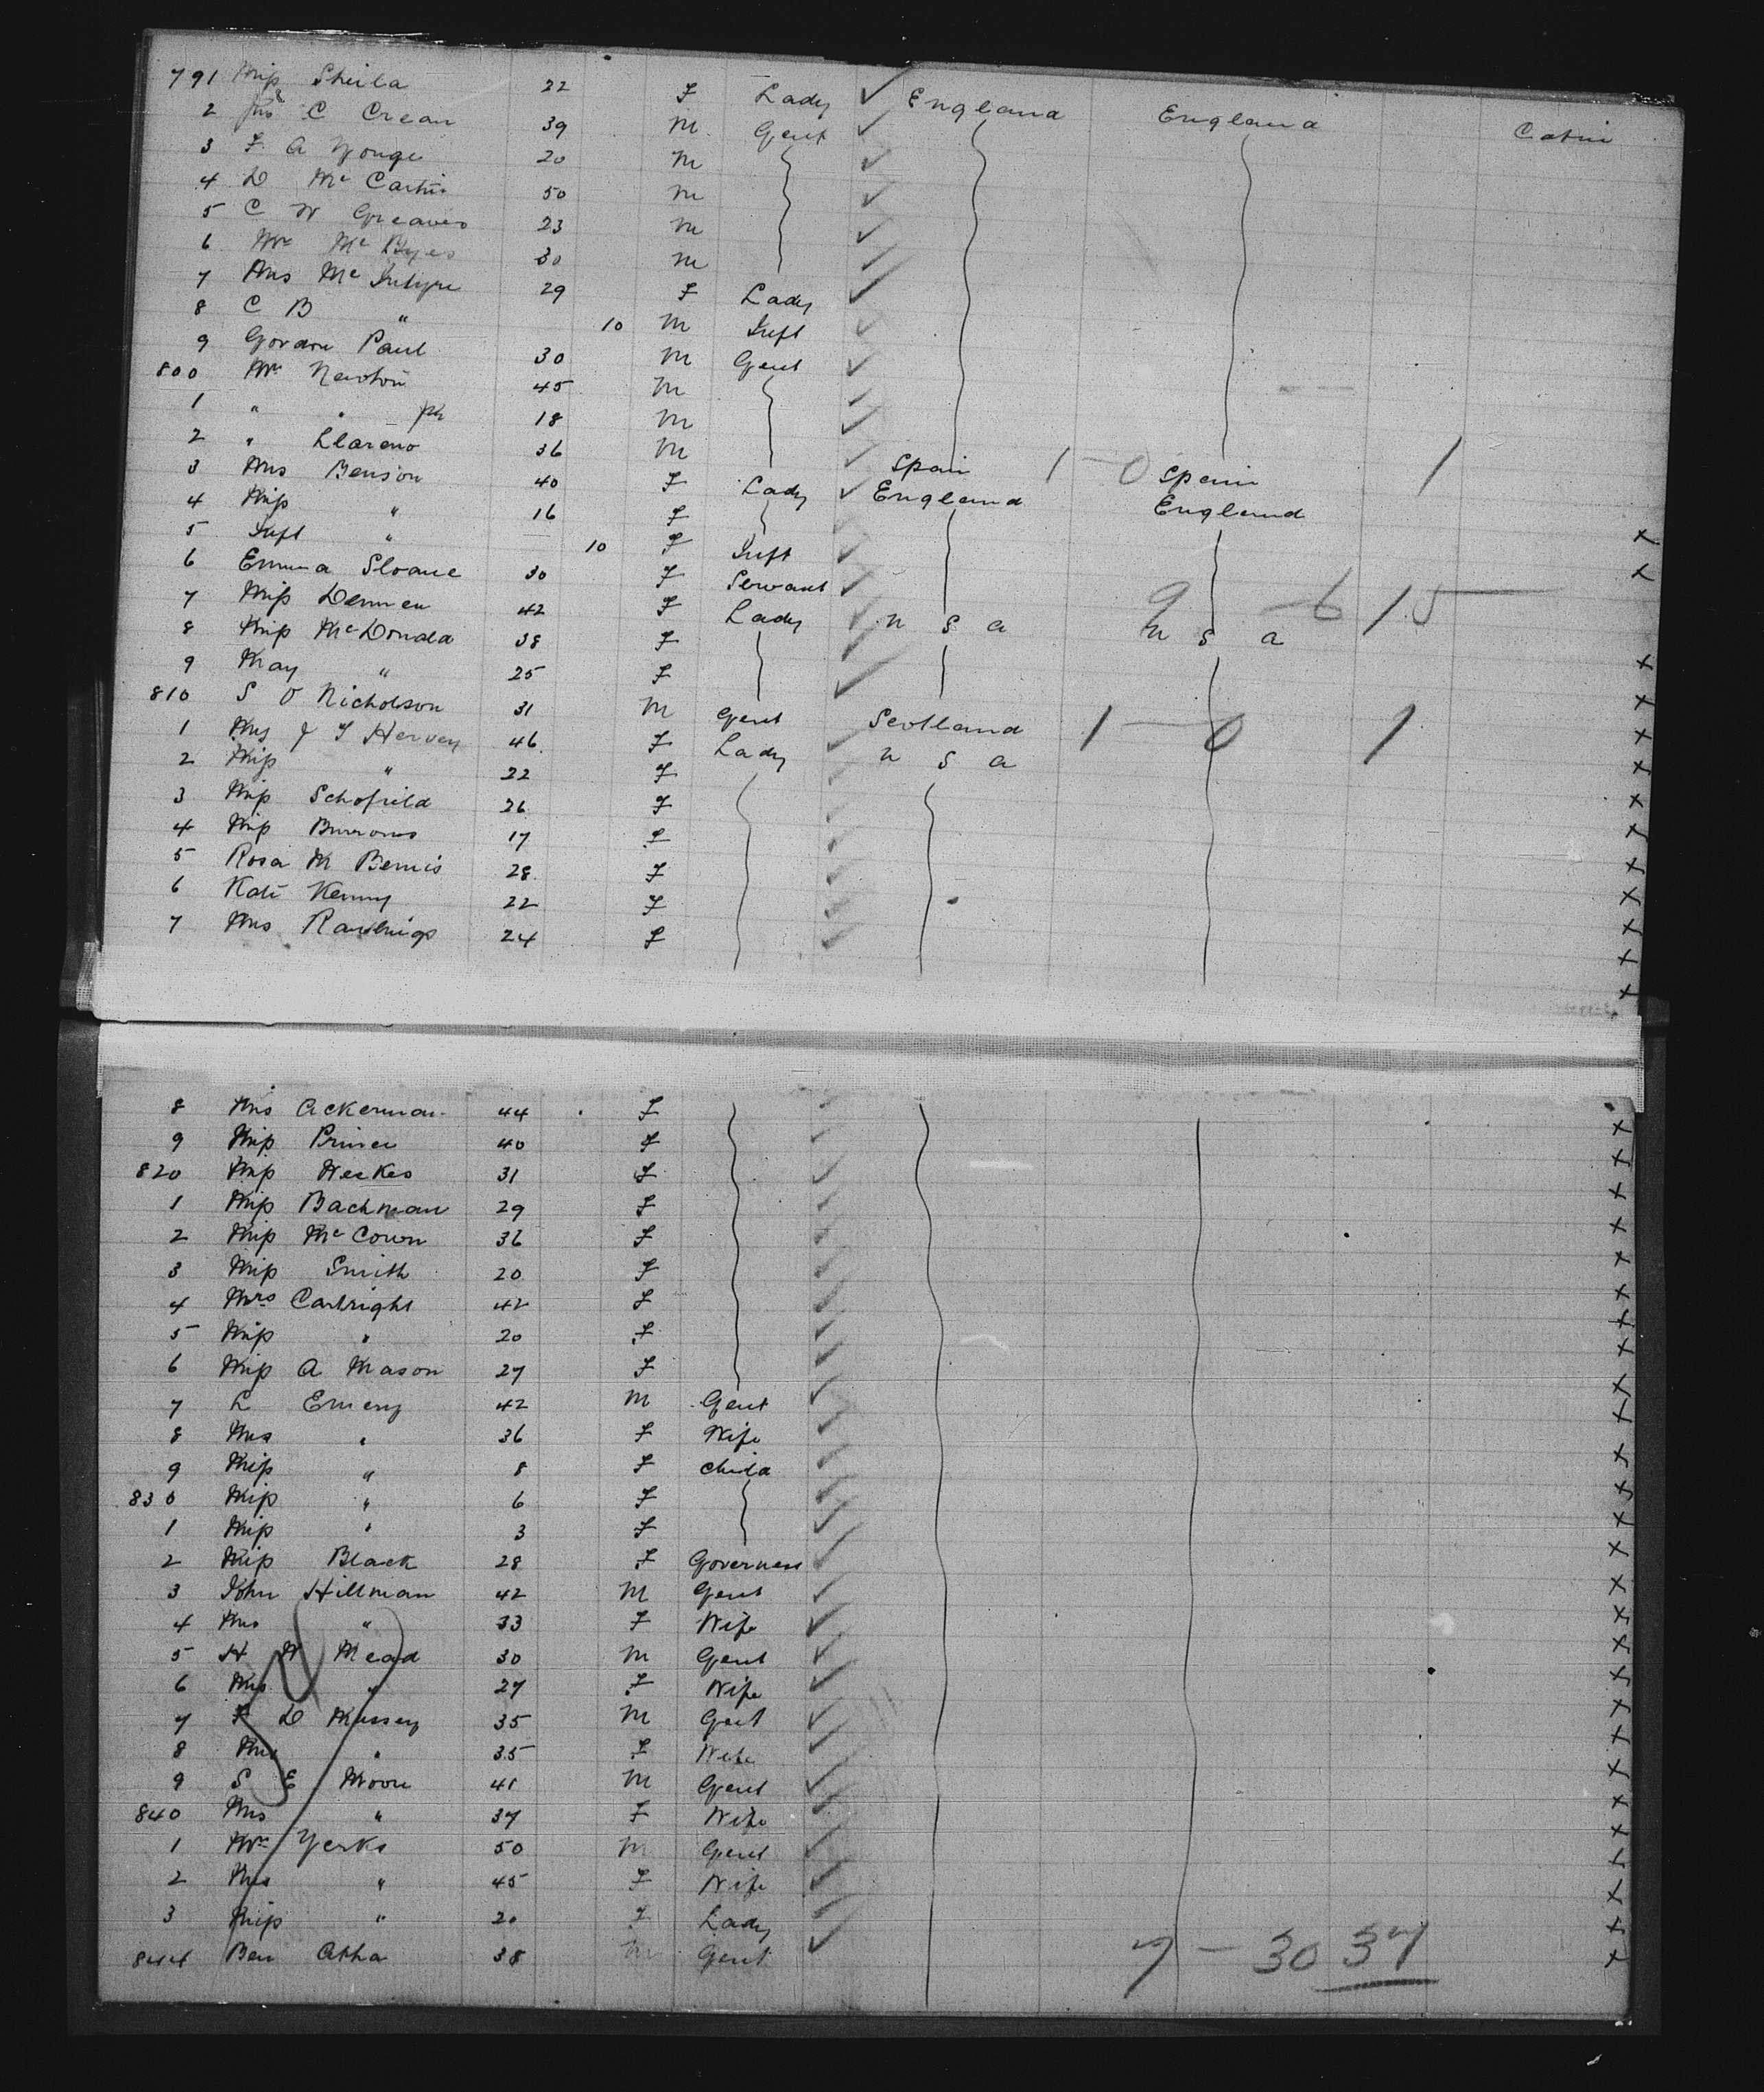 791 Miss Sheila 22 F Lady ✓ England England Cabin
2 Jno C Crean 39 M Gent ✓
3 F. A Yonge 20 M ✓
4 D Mc 50 M ✓
5 C W Greaves 23 M ✓
6 Mr Mc 30 M ✓
7 Mrs McIntyre 29 F Lady ✓
8 C B " 10 M Inft ✓
9 Gordon Paul 30 M Gent ✓
800 Mr Newton 45 M ✓
1 " " Jr 18 M ✓
2 " Llareno 36 M ✓ Spain 1 - 0 Spain 1
3 Mrs Benson 40 F Lady ✓ England England
4 Miss " 16 F ✓
5 Inft " 10 F Inft ✓ x
6 Emma Sloane 30 F Servant ✓ 9 - 6 15 x
7 Miss Denmen 42 F Lady ✓ U S A U S A
8 Miss McDonald 38 F ✓ x
9 May " 25 F ✓ x
810 S O Nicholson 31 M Gent Scotland 1 - 0 1 x
1 Mrs J F Hervey 46 F Lady ✓ U S A x
2 Miss " 22 F ✓ x
3 Miss Schofield 26 F ✓ x
4 Miss Burrows 17 F ✓ x
5 Rosa M Bemis 28 F ✓ x
6 Kate Kenny 22 F ✓ x
7 Mrs Rawlings 24 F ✓ x
8 Mrs Ackerman 44 F ✓ x
9 Miss Prince 40 F ✓ x
820 Miss Weekes 31 F ✓ x
1 Miss Bachman 29 F ✓ x
2 Miss McCown 36 F ✓ x
3 Miss Smith 20 F ✓ x
4 Mrs Cartright 42 F ✓ x
5 Miss " 20 F ✓ x
6 Miss A Mason 27 F ✓ x
7 L Emery 42 M Gent ✓ x
8 Mrs " 36 F Wife ✓ x
9 Miss " 8 F Child ✓ x
830 Miss " 6 F ✓ x
1 Miss " 3 F ✓ x
2 Miss Black 28 F Governess ✓ x
3 John Hillman 42 M Gent ✓ x
4 Mrs " 33 F Wife ✓ x
5 H W Mead 30 M Gent ✓ x
6 Mrs " 27 F Wife ✓ x
7 F D Mussey 35 M Gent ✓ x
8 Mrs " 35 F Wife ✓ x
9 S E Moon 41 M Gent ✓ x
840 Mrs " 37 F Wife ✓ x
1 Mr Yerks 50 M Gent ✓ x
2 Mrs " 45 F Wife ✓ x
3 Miss " 20 F Lady ✓ x
844 Ben Atha 38 M Gent ✓ 7 - 30 37 x